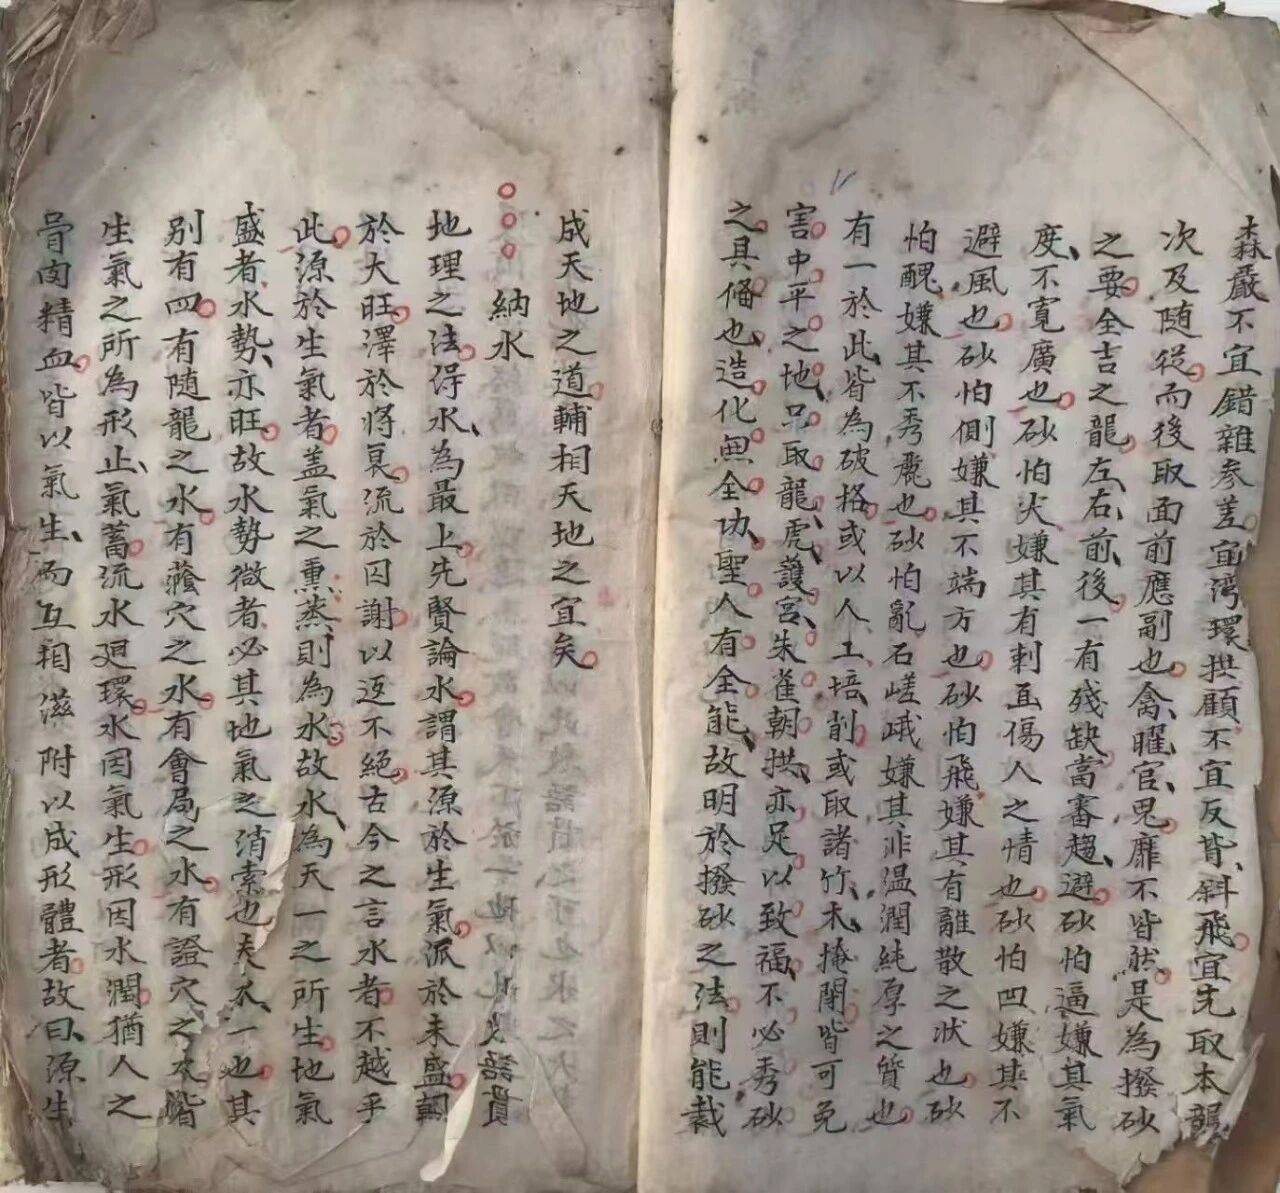 森嚴不宜錯雜參差宜灣環拱顧不宜反背斜飛宜先取本
次及随從而後取面前應副也禽曜官鬼靡不皆然是為撥砂
之要全吉之龍左右前後一有殘缺當審趨避砂怕逼嫌其氣
度不寬廣也砂怕尖嫌其有刺直傷人之情也砂怕凹嫌其不
避風也砂怕側嫌其不端方也砂怕飛嫌其有離散之狀也砂
怕醜嫌其不秀麗也砂怕亂石嵯峨嫌其非温潤純厚之質也
有一於此皆為破格或以人工培削或取諸竹木掩閉皆可免
害中平之地只取龍虎護宮朱雀朝拱亦足以致福不必秀砂
之具備也造化無全功聖人有全能故明於撥砂之法則能裁
成天地之道輔相天地之宜矣
納水
地理之法得水為最上先賢論水謂其源於生氣派於未盛
於大旺澤於將衰流於囚謝以返不絕古今之言水者不越乎
此源於生氣者盖氣之熏蒸則為水故水為天一之所生地氣
盛者水勢亦旺故水勢微者必其地氣之消索也夫水一也其
别有四有随龍之水有蔭穴之水有會局之水有證穴之水皆
生氣之所為形止氣蓄流水廻環水因氣生形因水潤猶人之
骨肉精血皆以氣生而互相滋附以成形體者故曰源生